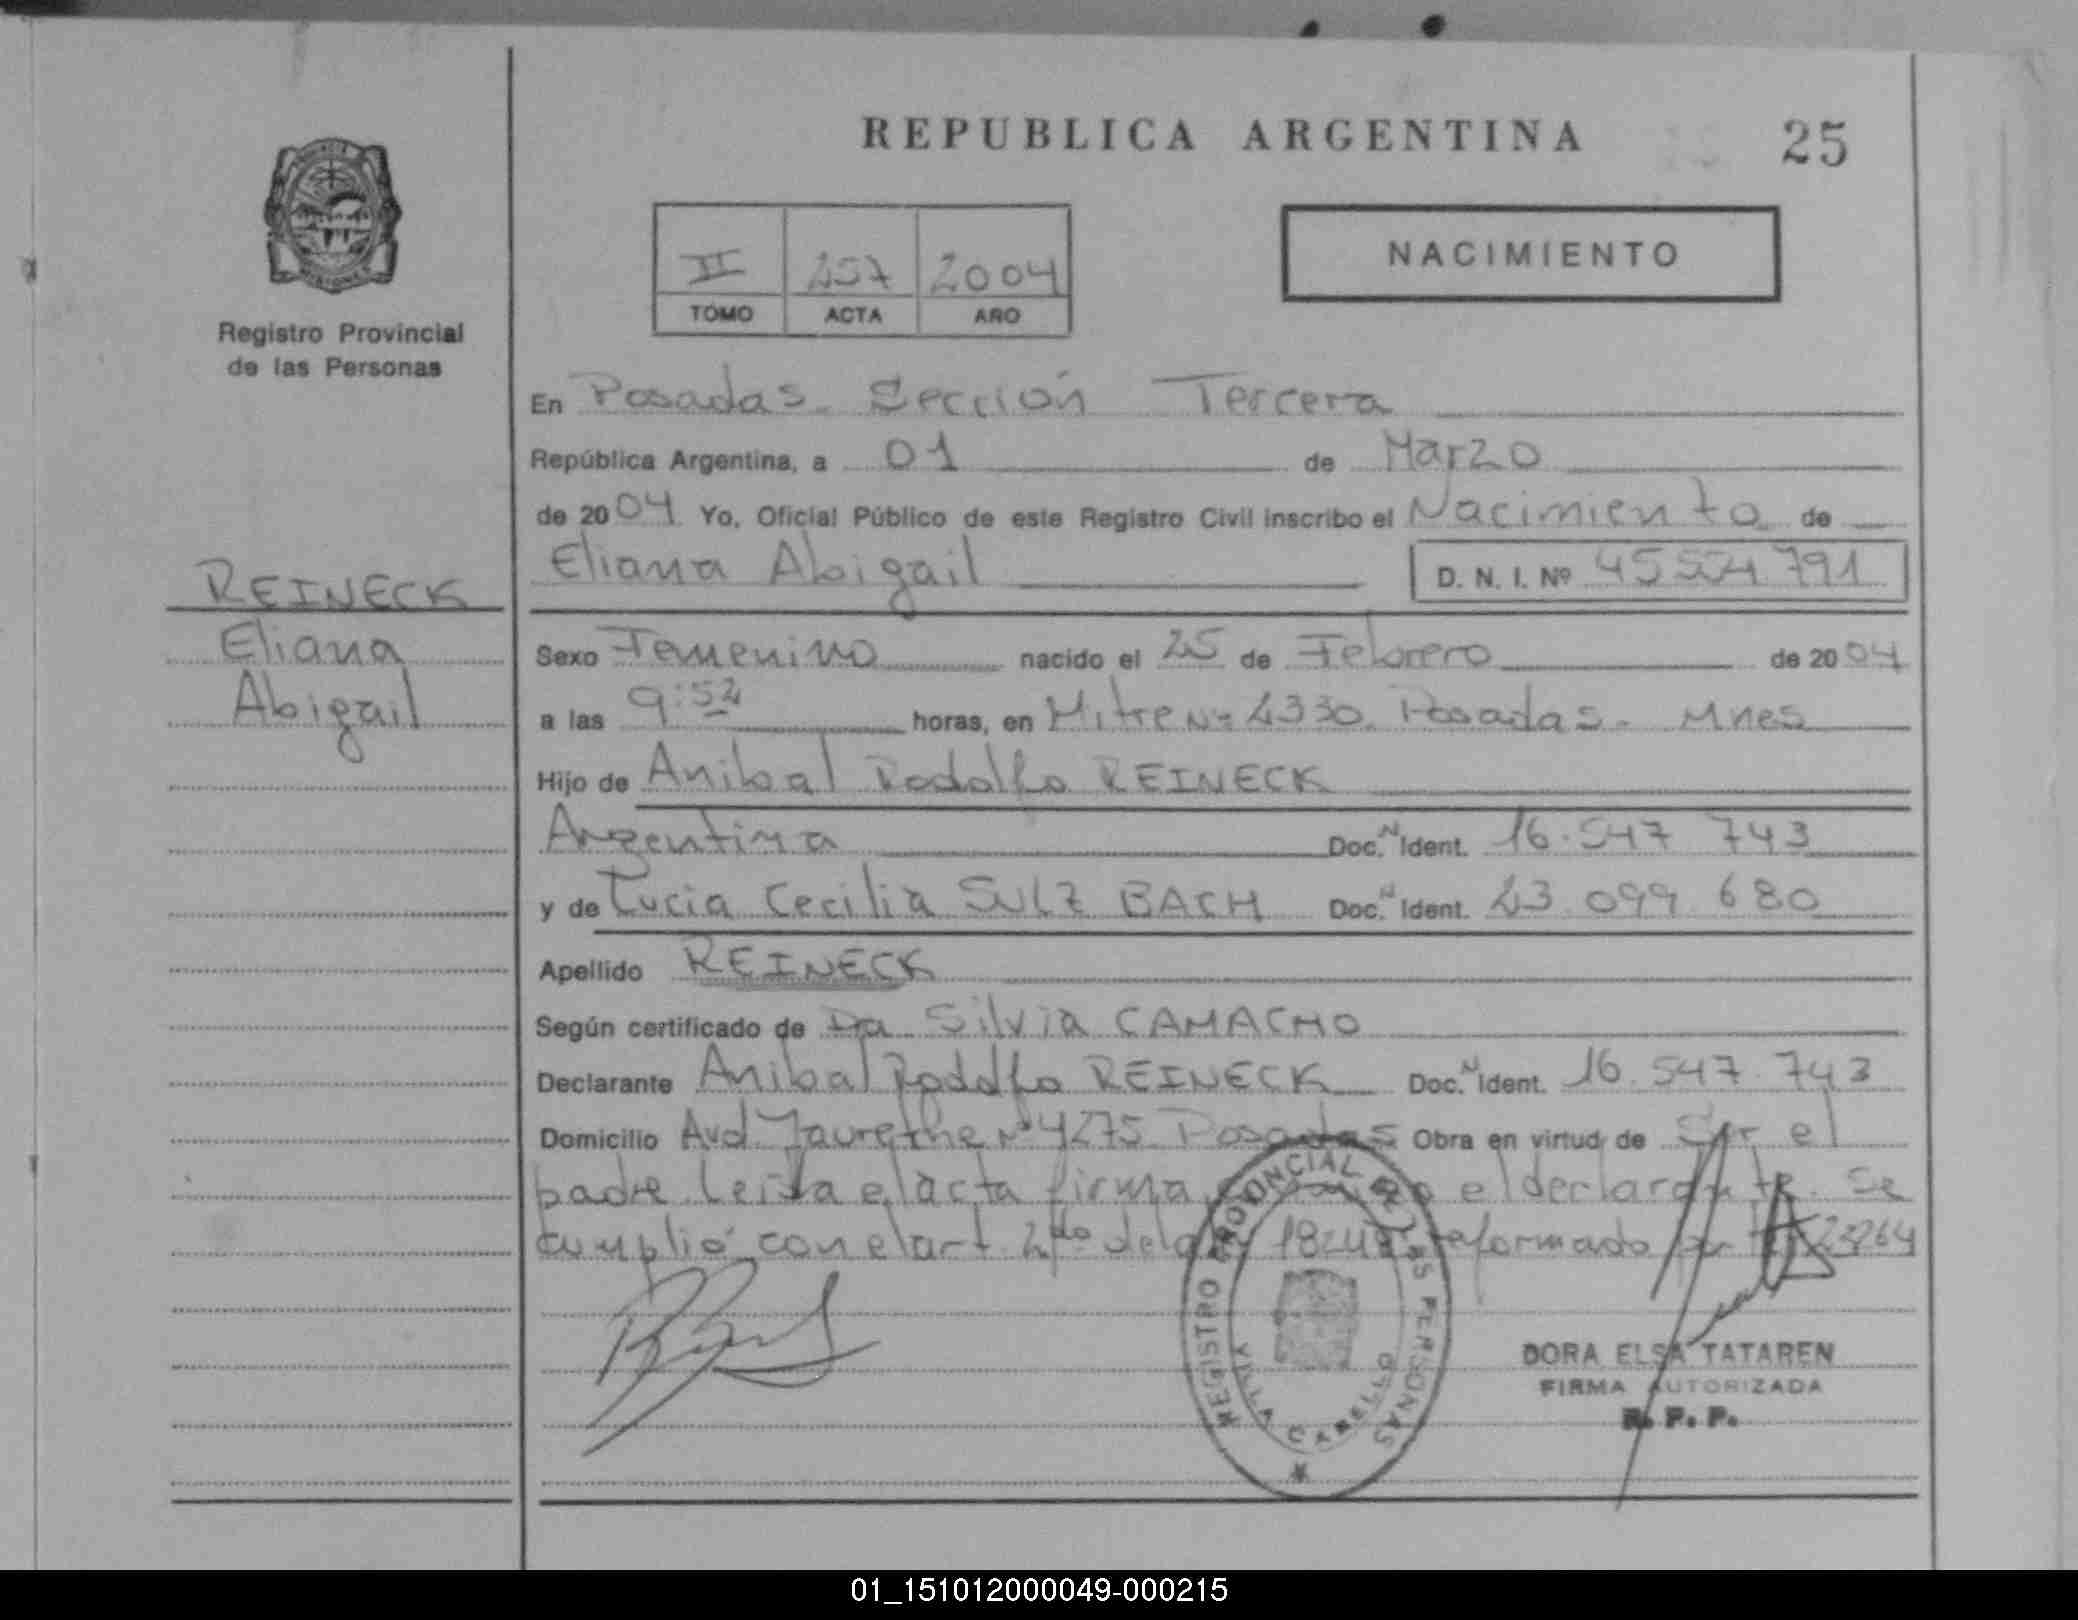 REPUBLICA ARGENTINA
25
Registro Provincial
de las Personas
II 257 2004
TOMO ACTA AÑO
NACIMIENTO
En Posadas. Sección Tercera
República Argentina, a 01 de Marzo
de 2004 Yo, Oficial Público de este Registro Civil inscribo el Nacimiento de
Eliana Abigail D. N. I. Nº 45 524 791
REINECK
Eliana
Abigail
Sexo Femenino nacido el 25 de Febrero de 2004
a las 9:52 horas, en Mitre Nº 2330. Posadas. Mnes
Hijo de Anibal Rodolfo REINECK
Argentina Doc. N Ident. 16.547 743
y de Lucia Cecilia SULZ BACH Doc. N Ident. 23.099.680
Apellido REINECK
Según certificado de Dra Silvia CAMACHO
Declarante Anibal Rodolfo REINECK Doc. N Ident. 16.547.743
Domicilio Avd. Jauretche Nº 4275 Posadas Obra en virtud de Ser el
padre Leida el acta firma el declarante. Se
cumplió con el art. 2do de la 18248 reformado por 23264
REGISTRO PROVINCIAL DE LAS PERSONAS
VILLA CABELLO
DORA ELSA TATAREN
FIRMA AUTORIZADA
R. P. P.
01_151012000049-000215